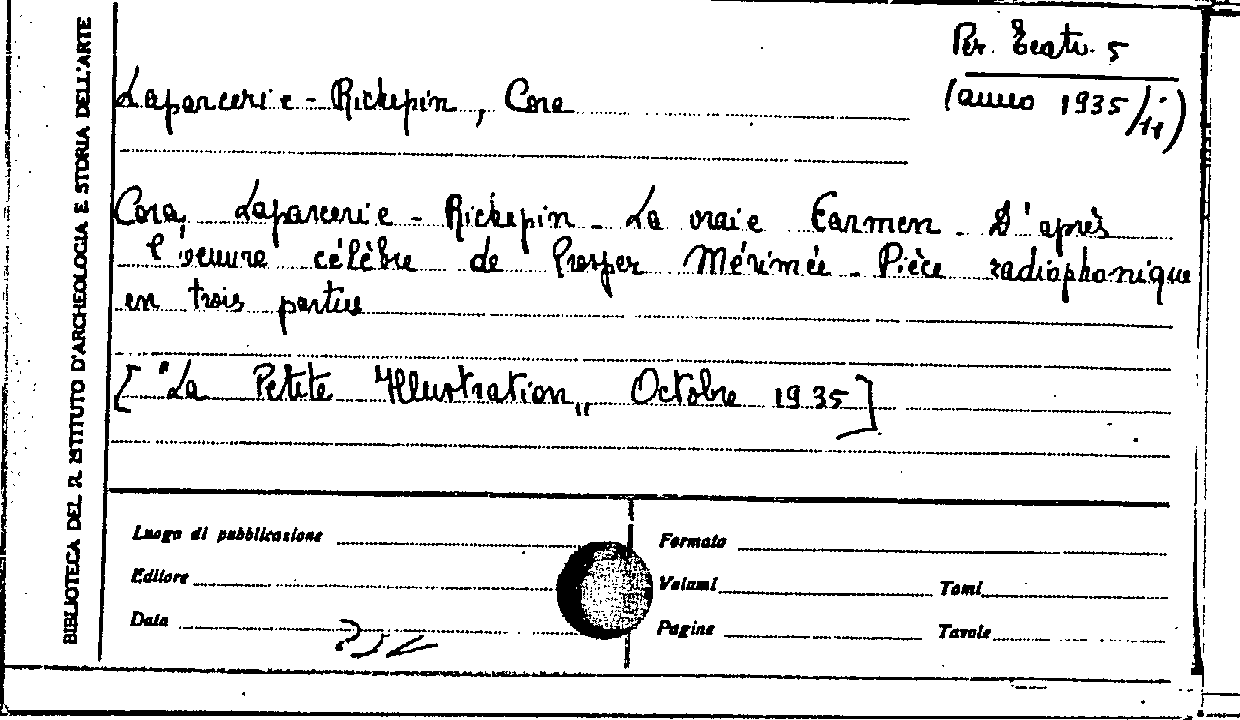 BIBLIOTECA DEL R. ISTITUTO D'ARCHEOLOGIA E STORIA DELL'ARTE
Per. Teatr. 5
(anno 1935/II)
Laparcerie-Richepin, Cora
Cora Laparcerie-Richepin - La vraie Carmen - D'après
l'oeuvre célèbre de Prosper Mérimée - Pièce radiophonique
en trois parties
["La Petite Illustration„ Octobre 1935]
Luogo di pubblicazione
Formato
Editore
Volumi
Tomi
Data
Pagine
Tavole